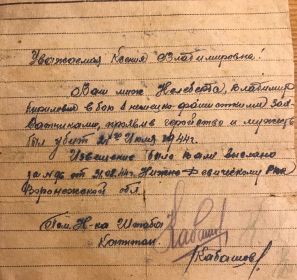 Уважаемая Ксения Владимировна!
Ваш муж Нелвеста, Владимир
Кирилович в бою с немецко-фашистскими зах-
ватчиками, проявив геройство и мужество
был убит 21го Июля 1944г.
Извещение было Вам выслано
за №96 от 21.07.44г. Нижне-Девическому РВК
Воронежской обл.
Пом. Н-ка Штаба
Капитан
Кабашов